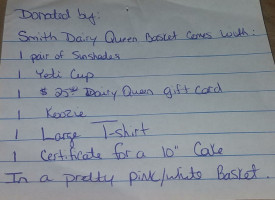 Donated by:
Smith Dairy Queen Basket Comes with:
1 pair of Sunshades
1 Yeti Cup
1 $ 25.00 Dairy Queen gift card
1 Koozie
1 Large T-shirt
1 Certificate for a 10" Cake
In a pretty pink/white Basket.